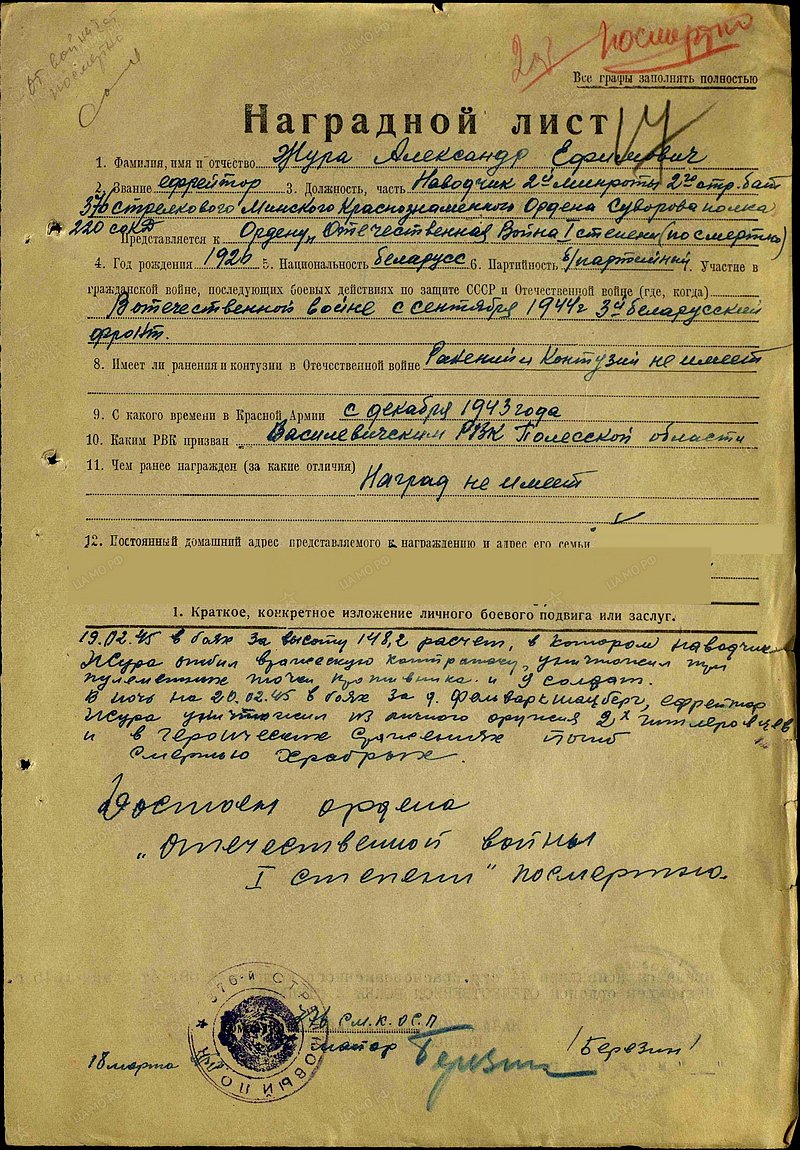 От. войны 2 ст
посмертно
2 ст посмертно
Все графы заполнять полностью
Наградной лист 17
1. Фамилия, имя и отчество Жура Александр Ефимович
2. Звание ефрейтор 3. Должность, часть Наводчик 2й минроты 2го стр. бат
376 стрелкового Минского Краснознаменного Ордена Суворова полка
220 сд
Представляется к Ордену „Отечественная Война I степени (посмертно)
4. Год рождения 1926 5. Национальность беларусс 6. Партийность б/партийный 7. Участие в
гражданской войне, последующих боевых действиях по защите СССР и Отечественной войне (где, когда)
В отечественной войне с сентября 1944г 3й беларусский
фронт.
8. Имеет ли ранения и контузии в Отечественной войне Ранений и Контузий не имеет
9. С какого времени в Красной Армии с декабря 1943 года
10. Каким РВК призван Василевичским РВК Полесской области
11. Чем ранее награжден (за какие отличия) Наград не имеет
12. Постоянный домашний адрес представляемого к награждению и адрес его семьи
1. Краткое, конкретное изложение личного боевого подвига или заслуг.
19.02.45 в боях за высоту 148,2 расчет, в котором наводчик
Жура отбил вражескую контратаку, уничтожил три
пулеметные точки противника и 9 солдат.
В ночь на 20.02.45 в боях за д. Фольварк шацберг, ефрейтор
Жура уничтожил из личного оружия 2х гитлеровцев
и в героических сражениях погиб
смертью храбрых.
Достоен ордена
„Отечественной войны
I степени" посмертно.
376-й СТРЕЛКОВЫЙ ПОЛК
376 с.м.к.о.с.п
майор Березин /Березин/
18 марта